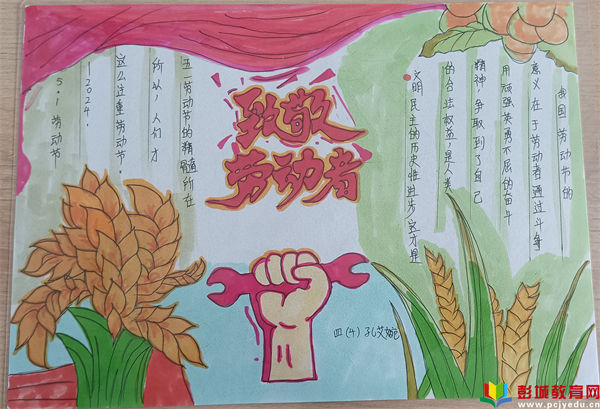 致敬
劳动者
我国劳动节的
意义在于劳动者通过斗争
用顽强英勇不屈的奋斗
精神,争取到了自己
的合法权益,是人类
文明民主的历史性进步,这才是
五一劳动节的精髓所在
所以,人们才
这么注重劳动节。
!2024.
5.1劳动节
四(4)孔艾婉
彭城教育网
www.pcjyedu.cn